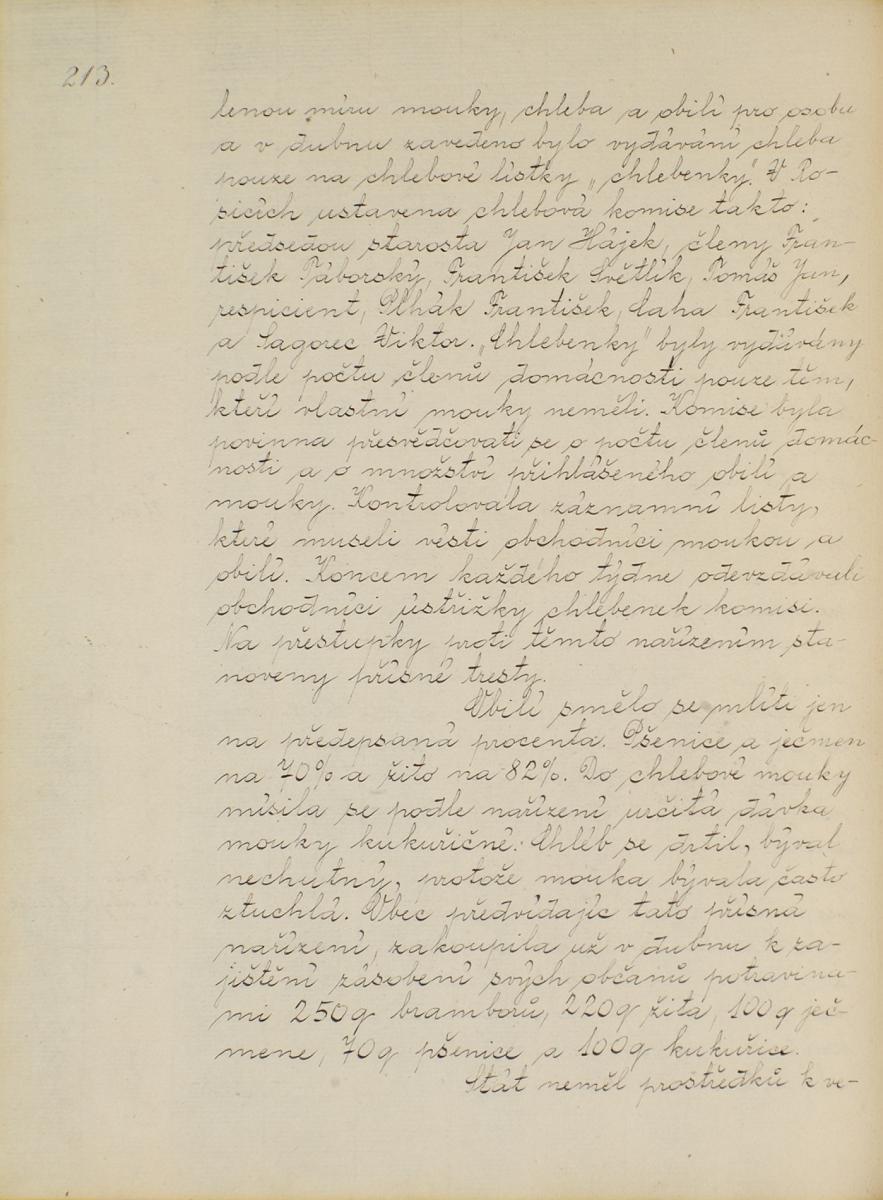 213.
lenou míru mouky, chleba a obilí pro osobu
a v dubnu zavedeno bylo vydávání chleba
pouze na chlebové lístky „chlebenky". V Ro-
sicích ustavena chlebová komise takto:
předsedou starosta Jan Hájek, členy Fran-
tišek Táborský, František Světlík, Tomáš Jan,
respicient, Plhák František, Caha František
a Sagorec Viktor. „Chlebenky" byly vydávány
podle počtu členů domácnosti pouze těm,
kteří vlastní mouky neměli. Komise byla
povinna přesvědčovati se o počtu členů domác-
nosti a o množství přihlášeného obilí a
mouky. Kontrolovala záznamní listy,
které museli vésti obchodníci moukou a
obilí. Koncem každého týdne odevzdávali
obchodníci ústřižky chlebenek komisi.
Na přestupky proti těmto nařízením sta-
noveny přísné tresty.
Obilí smělo se mlíti jen
na předepsaná procenta. Pšenice a ječmen
na 70% a žito na 82%. Do chlebové mouky
mísila se podle nařízení určitá dávka
mouky kukuřičné. Chléb se drtil, býval
nechutný, protože mouka bývala často
ztuchlá. Obec předvídajíc tato přísná
nařízení, zakoupila už v dubnu k za-
jištění zásobení svých občanů potravina-
mi 250q bramborů, 220q žita, 100q ječ-
mene, 70q pšenice a 100q kukuřice.
Stát neměl prostředků k ve-